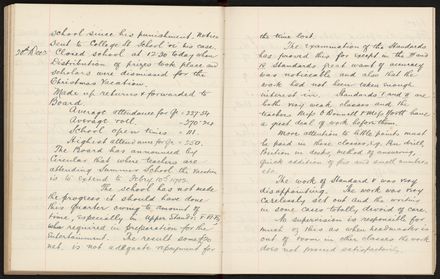 school since his punishment. Notice
sent to College St School re his case.
Closed school at 12-30 today when
Distribution of prizes took place and
scholars were dismissed for the
Christmas Vacation.
Made up returns & forwarded to
Board
Average attendance for Qr = 227.54
Average roll.
School open times = 111
Highest attendance for Qr = 250
The Board has announced by
Circular that where teachers are
attending Summer School the Vacation
is to extend to Feby 10th
The school has not made
the progress it should have done
this quarter owing to amount of
time, especially in upper Stands.
required in preparation for the
Entertainment. The result some
net. is not adequate repayment for
the time lost.
The Examination of the Standards
has proved this for except in the
Standards great want of accuracy
was noticeable and also that the
work had not been taken enough
interest in. Standards and are
both very weak classes and the
teachers Miss and Miss North have
a great deal of work before them.
More attention to little points must
be paid in these classes, e.g. Pen drill,
Position in desks, method of answering,
quick addition of pes and small numbers
etc
The work of Standard V was very
disappointing. The work was very
carelessly set out and the
in some cases totally devoid of care.
As supervision is responsible for
much of this as when headmaster is
out of room in other classes the work
does not proceed satisfactorily.